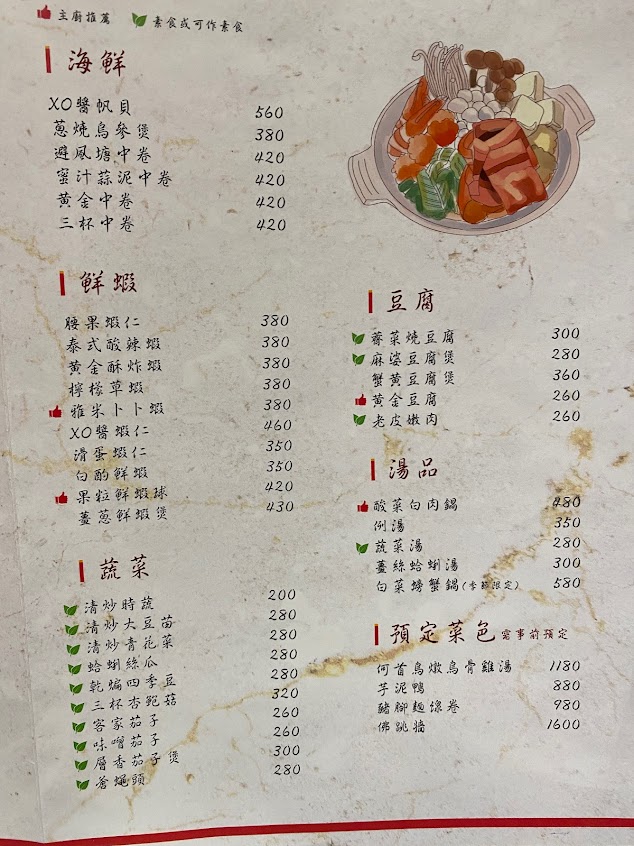 主廚推薦 素食或可作素食
海鮮
XO醬帆貝 560
蔥燒烏參煲 380
避風塘中卷 420
蜜汁蒜泥中卷 420
黃金中卷 420
三杯中卷 420
鮮蝦
腰果蝦仁 380
泰式酸辣蝦 380
黃金酥炸蝦 380
檸檬草蝦 380
雅米卜卜蝦 380
XO醬蝦仁 460
滑蛋蝦仁 350
白酌鮮蝦 350
果粒鮮蝦球 420
薑蔥鮮蝦煲 430
蔬菜
清炒時蔬 200
清炒大豆苗 280
清炒青花菜 280
蛤蜊絲瓜 280
乾煸四季豆 280
三杯杏鮑菇 320
客家茄子 260
味噌茄子 260
層香茄子煲 300
蒼蠅頭 280
豆腐
薺菜燒豆腐 300
麻婆豆腐煲 280
蟹黃豆腐煲 360
黃金豆腐 260
老皮嫩肉 260
湯品
酸菜白肉鍋 480
例湯 350
蔬菜湯 280
薑絲蛤蜊湯 300
白菜螃蟹鍋(季節限定) 580
預定菜色 需事前預定
何首烏燉烏骨雞湯 1180
芋泥鴨 880
豬腳麵線卷 980
佛跳牆 1600